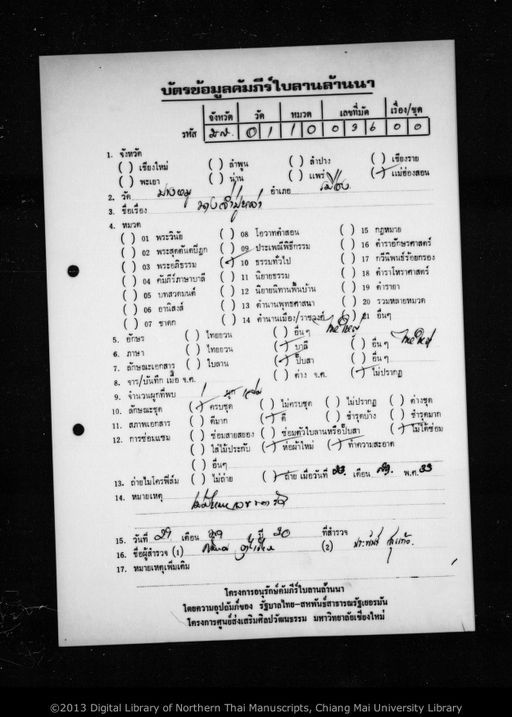 บัตรข้อมูลคัมภีร์ใบลานล้านนา
จังหวัด วัด หมวด เลขที่มัด เรื่อง/ชุด
รหัส มส. 01 10 036 00
1. จังหวัด
( ) เชียงใหม่ ( ) ลำพูน ( ) ลำปาง ( ) เชียงราย
( ) พะเยา ( ) น่าน ( ) แพร่ (✓) แม่ฮ่องสอน
2. วัด อำเภอ เมือง
3. ชื่อเรื่อง
4. หมวด
( ) 01 พระวินัย ( ) 08 โอวาทคำสอน ( ) 15 กฎหมาย
( ) 02 พระสุตตันตปิฎก ( ) 09 ประเพณีพิธีกรรม ( ) 16 ตำราอักษรศาสตร์
( ) 03 พระอภิธรรม (✓) 10 ธรรมทั่วไป ( ) 17 กวีนิพนธ์ร้อยกรอง
( ) 04 คัมภีร์ภาษาบาลี ( ) 11 นิยายธรรม ( ) 18 ตำราโหราศาสตร์
( ) 05 บทสวดมนต์ ( ) 12 นิยายนิทานพื้นบ้าน ( ) 19 ตำรายา
( ) 06 อานิสงส์ ( ) 13 ตำนานพุทธศาสนา ( ) 20 รวมหลายหมวด
( ) 07 ชาดก ( ) 14 ตำนานเมือง/ราชวงศ์ ( ) 21 อื่นๆ
5. อักษร ( ) ไทยยวน (✓) อื่นๆ ไทใหญ่
6. ภาษา ( ) ไทยยวน (✓) บาลี (✓) อื่นๆ ไทใหญ่
7. ลักษณะเอกสาร ( ) ใบลาน (✓) ปั๊บสา ( ) อื่นๆ
8. จาร/บันทึก เมื่อ จ.ศ. ( ) ต่าง จ.ศ. (✓) ไม่ปรากฏ
9. จำนวนผูกที่พบ 1 ผูก
10. ลักษณะชุด (✓) ครบชุด ( ) ไม่ครบชุด ( ) ไม่ปรากฏ ( ) ต่างชุด
11. สภาพเอกสาร ( ) ดีมาก (✓) ดี ( ) ชำรุดบ้าง ( ) ชำรุดมาก
12. การซ่อมแซม ( ) ซ่อมสายสยอง ( ) ซ่อมตัวใบลานหรือปั๊บสา (✓) ไม่ได้ซ่อม
( ) ใส่ไม้ประกับ (✓) ห่อผ้าใหม่ (✓) ทำความสะอาด
( ) อื่นๆ
13. ถ่ายไมโครฟิล์ม ( ) ไม่ถ่าย (✓) ถ่าย เมื่อวันที่ เดือน พ.ศ. 33
14. หมายเหตุ
15. วันที่ 29 เดือน ปี 30 ที่สำรวจ
16. ชื่อผู้สำรวจ (1) (2)
17. หมายเหตุเพิ่มเติม
โครงการอนุรักษ์คัมภีร์ใบลานล้านนา
โดยความอุปถัมภ์ของ รัฐบาลไทย-สหพันธ์สาธารณรัฐเยอรมัน
โครงการศูนย์ส่งเสริมศิลปวัฒนธรรม มหาวิทยาลัยเชียงใหม่
©2013 Digital Library of Northern Thai Manuscripts, Chiang Mai University Library